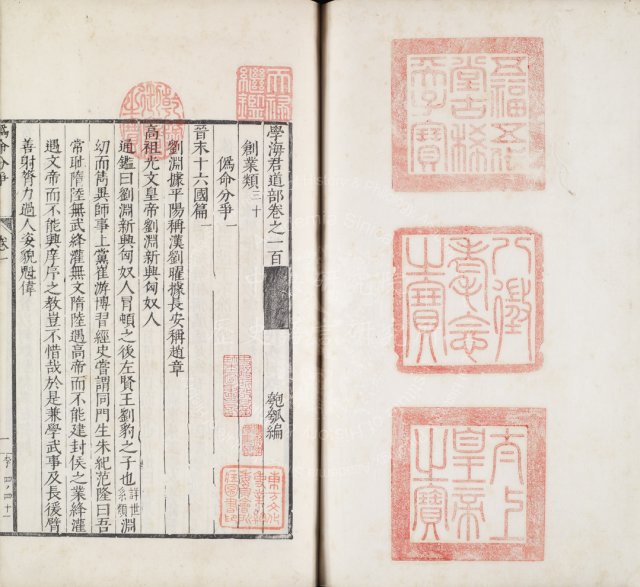 五福五代堂古稀天子寶
八徵耄念之寶
太上皇帝之寶
天祿繼鑑
乾隆御覽之寶
學海君道部卷之一百
編
創業類三十
僞命分爭一
晉末十六國篇一
劉淵據平陽稱漢劉曜據長安稱趙章
高祖光文皇帝劉淵新興匈奴人
通鑑曰劉淵新興匈奴人冒頓之後左賢王劉豹之子也詳世系類淵
幼而雋異師事上黨崔游博習經史嘗謂同門生朱紀范隆曰吾
常耻隋陸無武絳灌無文隋陸遇高帝而不能建封侯之業絳灌
遇文帝而不能興庠序之教豈不惜哉於是兼學武事及長猿臂
善射膂力過人姿貌魁偉
僞命分爭
卷一
東方文化事業總委員會所藏圖書印